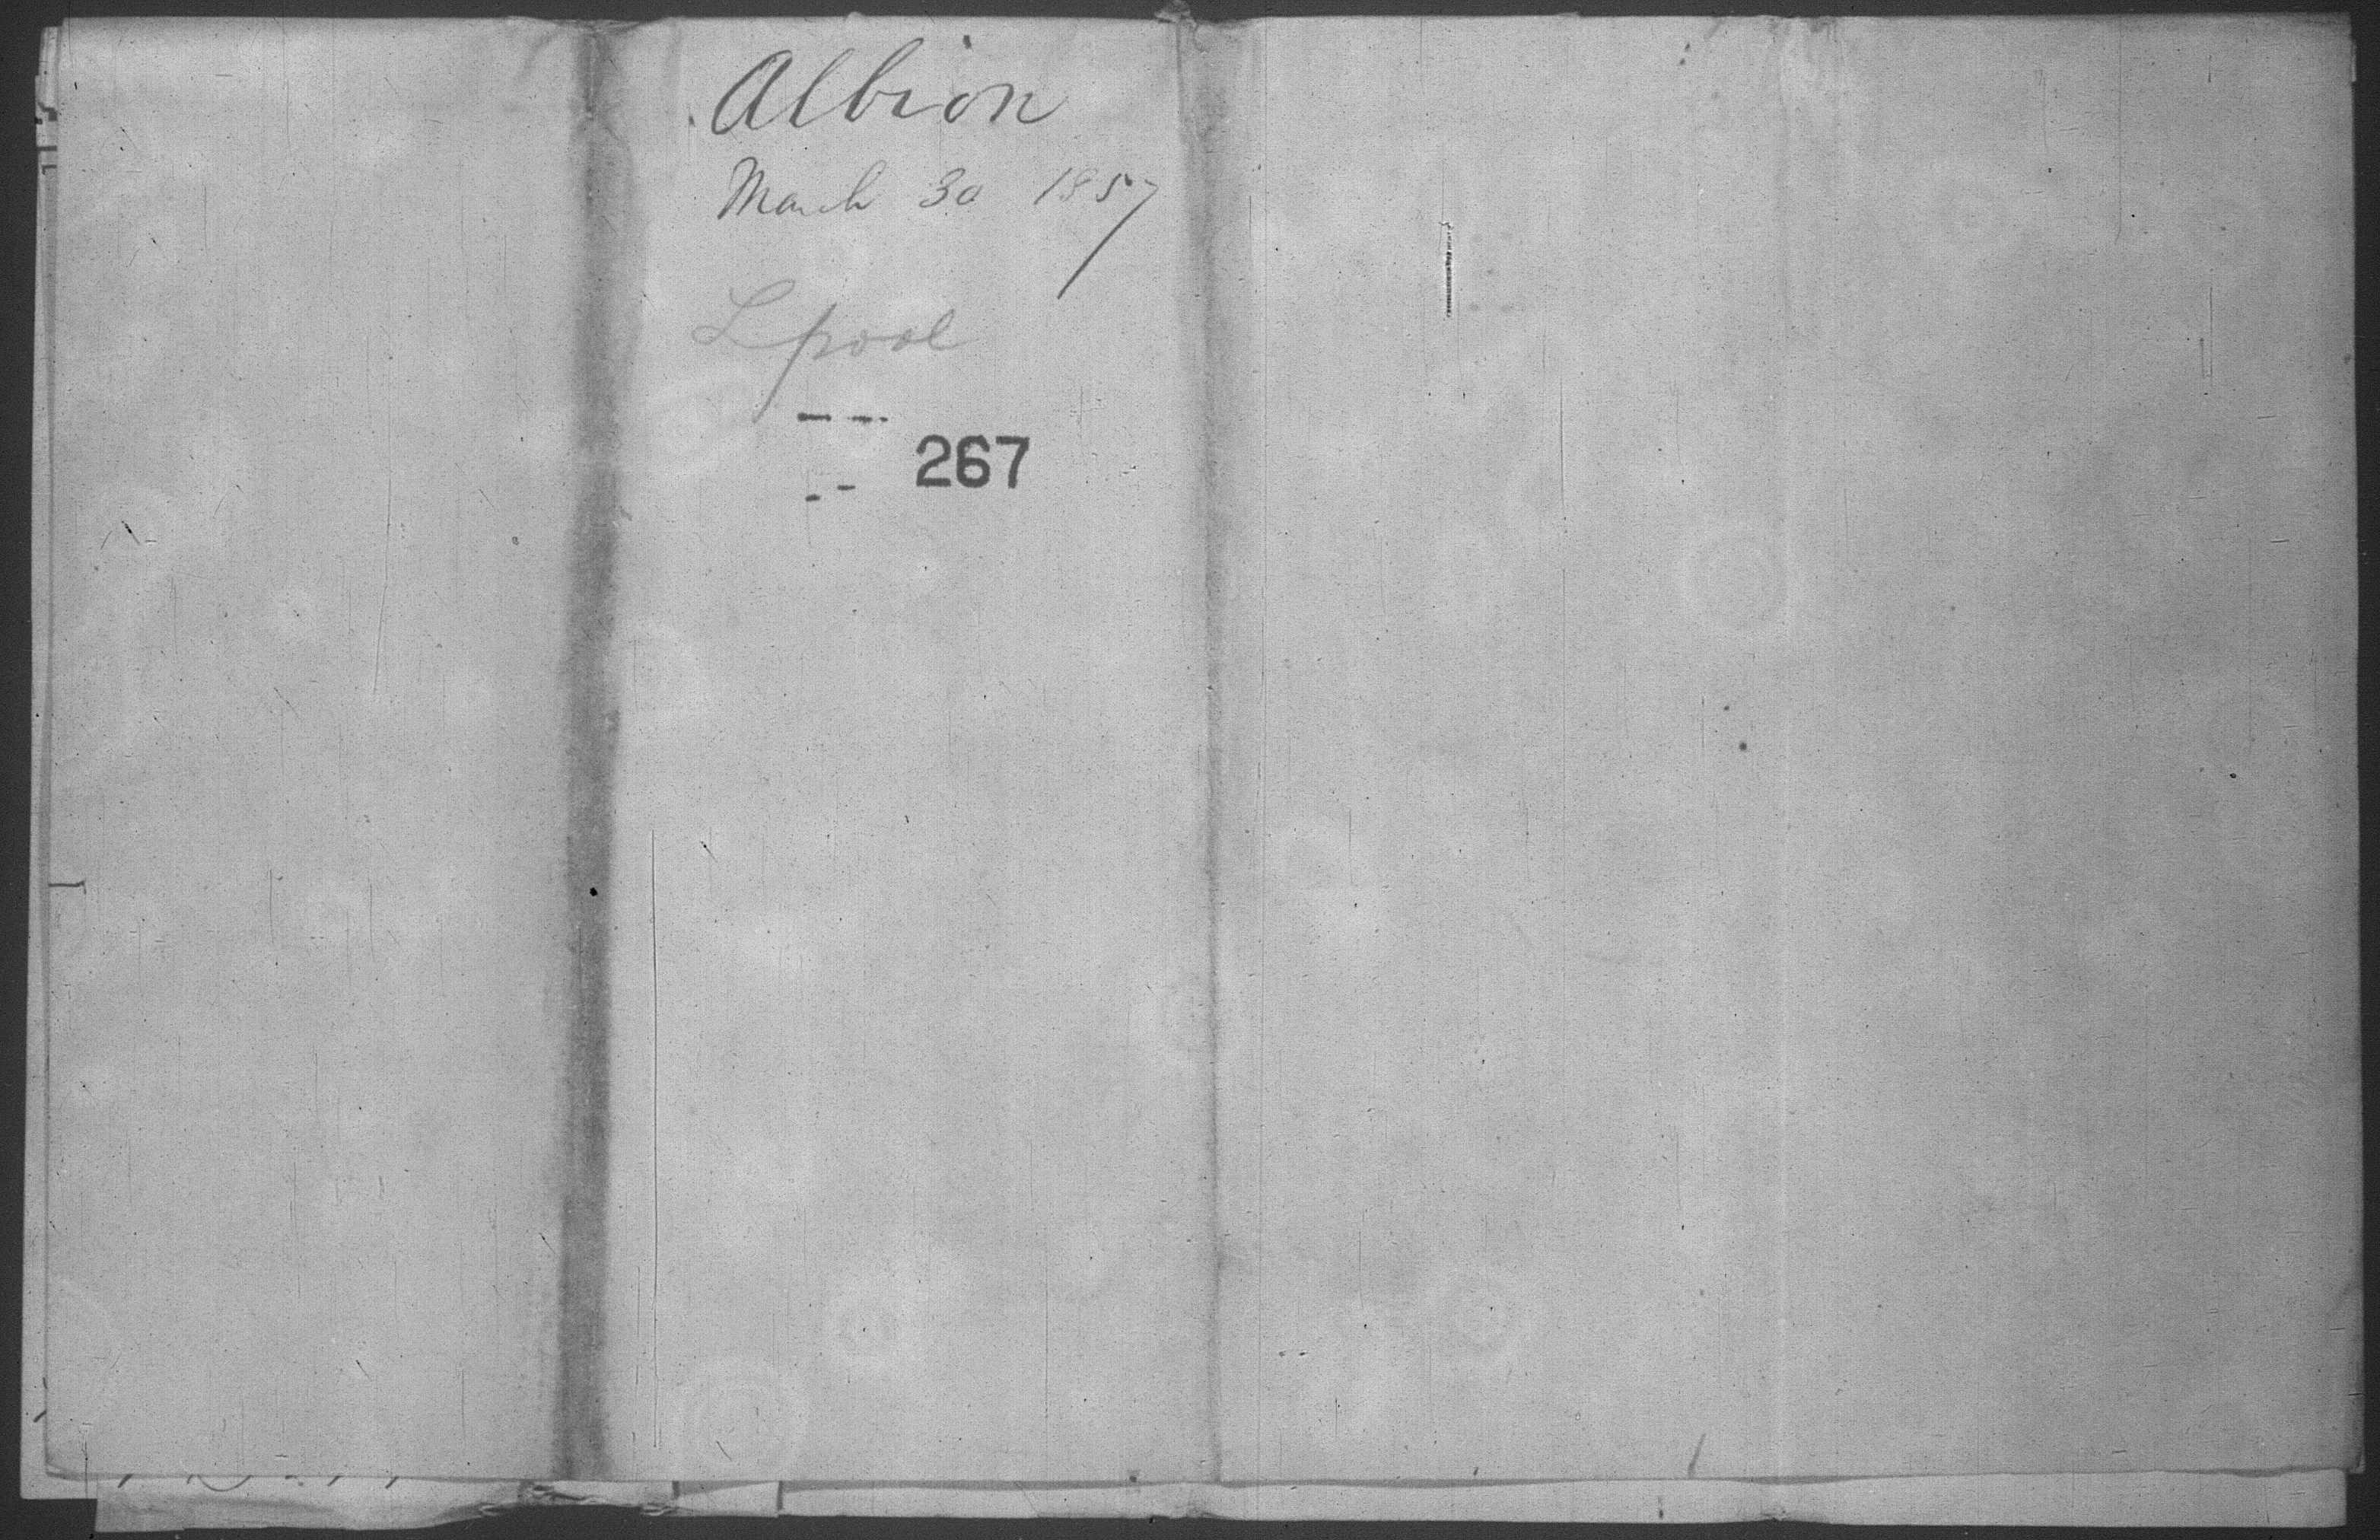 Albion
March 30 1857
Lpool
267